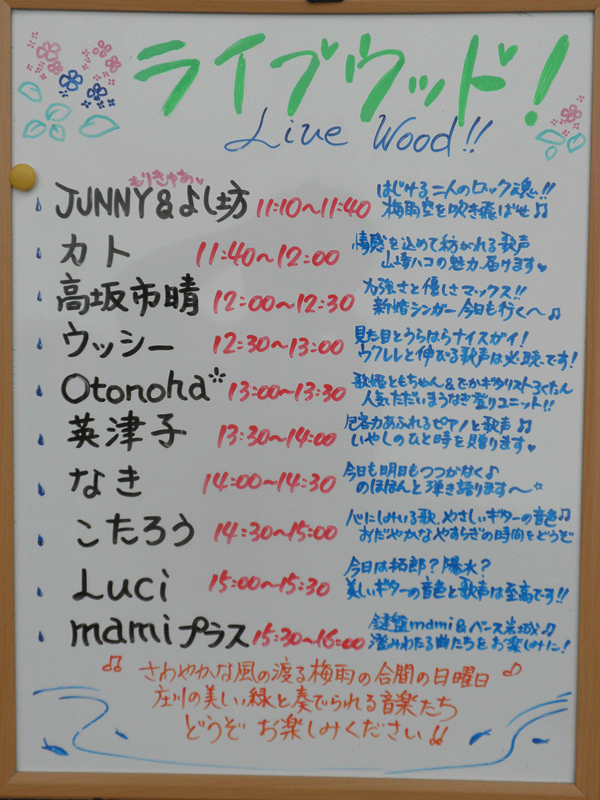 ライブウッド!
Live Wood!!
もりきゃあ
JUNNY&よし坊 11:10〜11:40 はじける二人のロック魂!!
梅雨空を吹き飛ばせ♫
カト 11:40〜12:00 情感を込めて紡がれる歌声
山崎ハコの魅力届けます
高坂市晴 12:00〜12:30 力強さと優しさマックス!!
新婚シンガー今日も行くぜ♫
ウッシー 12:30〜13:00 見た目とうらはらナイスガイ!
ウクレレと伸びる歌声は必聴です!
Otonoha* 13:00〜13:30 歌姫ともちゃん&でかギタリスト
人気ただいまうなぎ登りユニット!!
英津子 13:30〜14:00 包容力あふれるピアノと歌声♫
いやしのひと時を贈ります
なき 14:00〜14:30 今日も明日もつつがなく♪
のほほんと弾き語ります〜*
こたろう 14:30〜15:00 心にしみいる歌、やさしいギターの音色♫
おだやかなやすらぎの時間をどうぞ
Luci 15:00〜15:30 今日は拓郎?陽水?
美しいギターの音色と歌声は至高です!!
mamiプラス 15:30〜16:00 鍵盤mami&ベース岩城♫
澄みわたる曲たちをお楽しみに!
♫ さわやかな風の渡る梅雨の合間の日曜日 ♫
庄川の美しい緑と奏でられる音楽たち
どうぞ お楽しみください!!